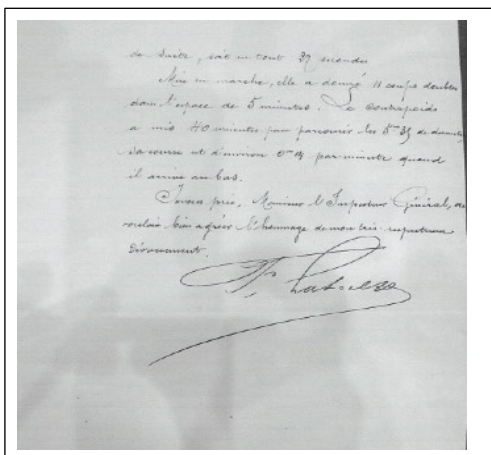 de suite, soit en tout 37 secondes
Mise en marche, elle a donné 11 coups doubles
dans l'espace de 5 minutes. Le contrepoids
a mis 40 minutes pour parcourir les 5m 35 de
sa course et d'environ 0m par minute quand
il arrive au bas.
Je vous prie, Monsieur l'Inspecteur Général, de
vouloir bien agréer l'hommage de mon très respectueux
dévouement.